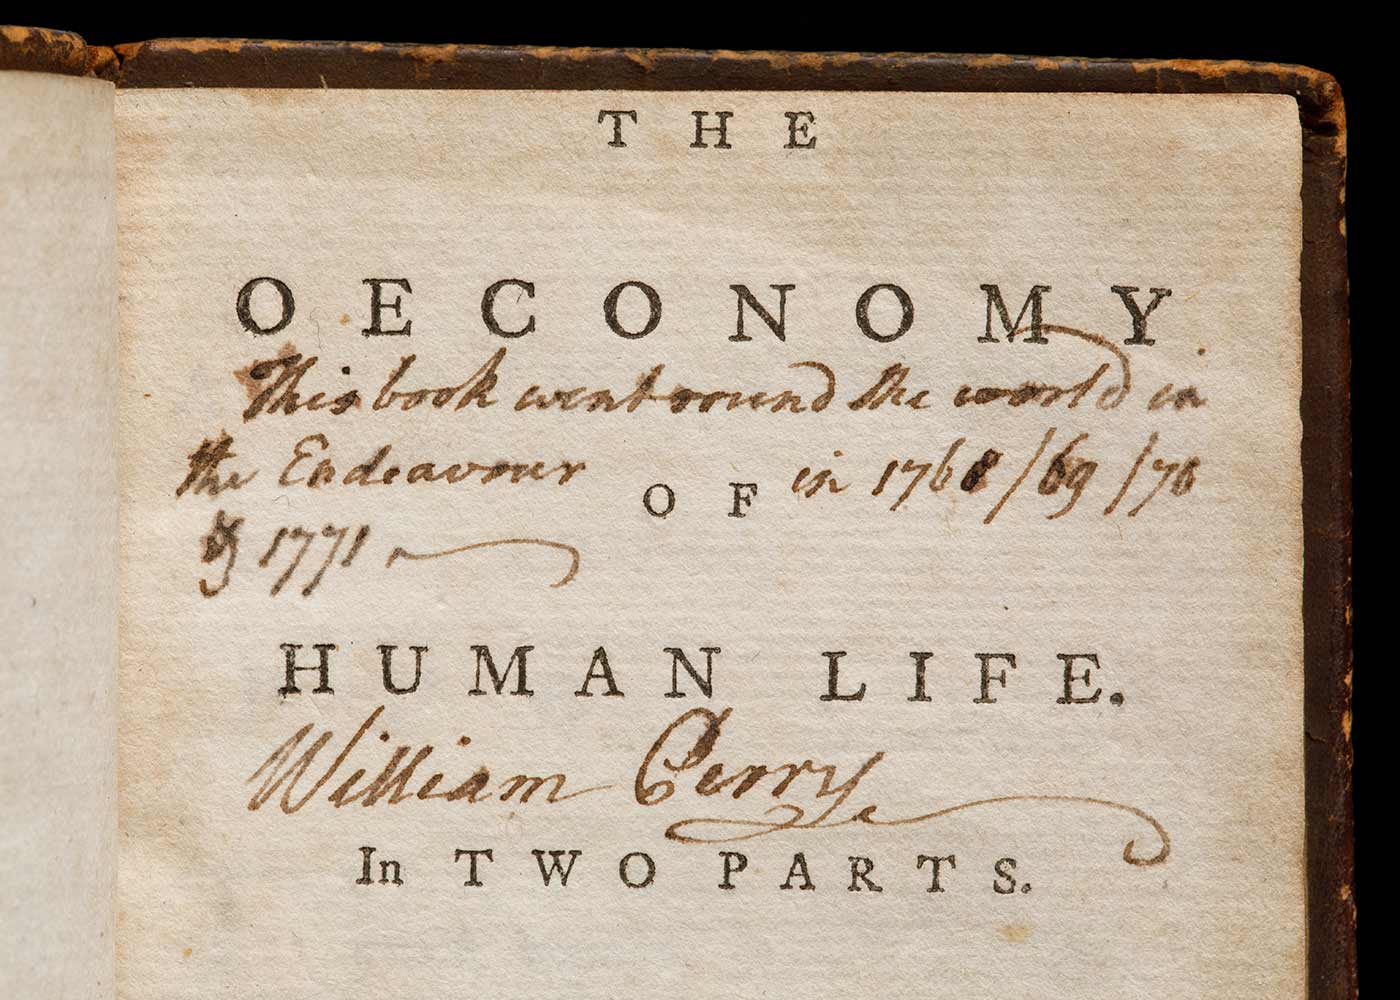 THE
OECONOMY
This book went round the world in
the Endeavour in 1768/69/70
OF
& 1771
HUMAN LIFE.
William Perry
In TWO PARTS.